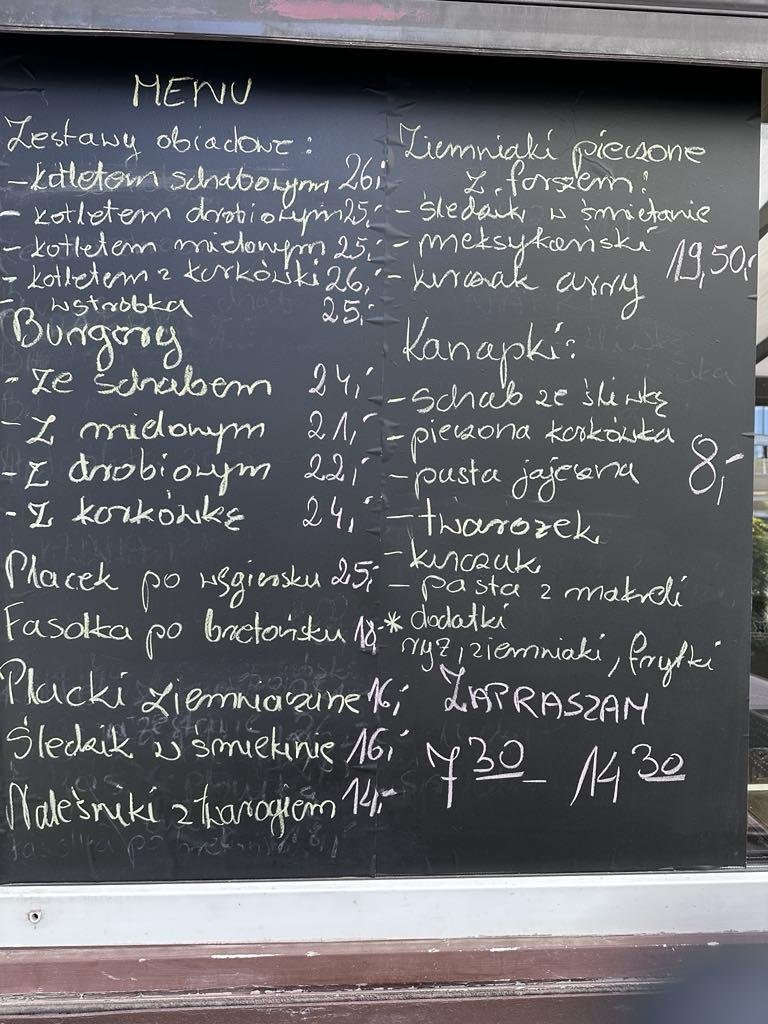 MENU
Zestawy obiadowe:
- kotletem schabowym 26,-
- kotletem drobiowym 25,-
- kotletem mielonym 25,-
- kotletem z karkówki 26,-
- wątróbka 25,-
Burgery
- ze schabem 24,-
- z mielonym 21,-
- z drobiowym 22,-
- z karkówkę 24,-
Placek po węgiersku 25,-
Fasolka po bretońsku 18,-
Placki ziemniaczane 16,-
Śledzik w śmietanie 16,-
Naleśniki z twarogiem 14,-
Ziemniaki pieczone
z farszem:
- śledzik w śmietanie
- meksykański 19,50,-
- kurczak curry
Kanapki:
- schab ze śliwkę
- pieczona karkówka
- pasta jajeczna 8,-
- twarożek
- kurczak
- pasta z makreli
* dodatki
ryż, ziemniaki, frytki
ZAPRASZAM
7 30 - 14 30